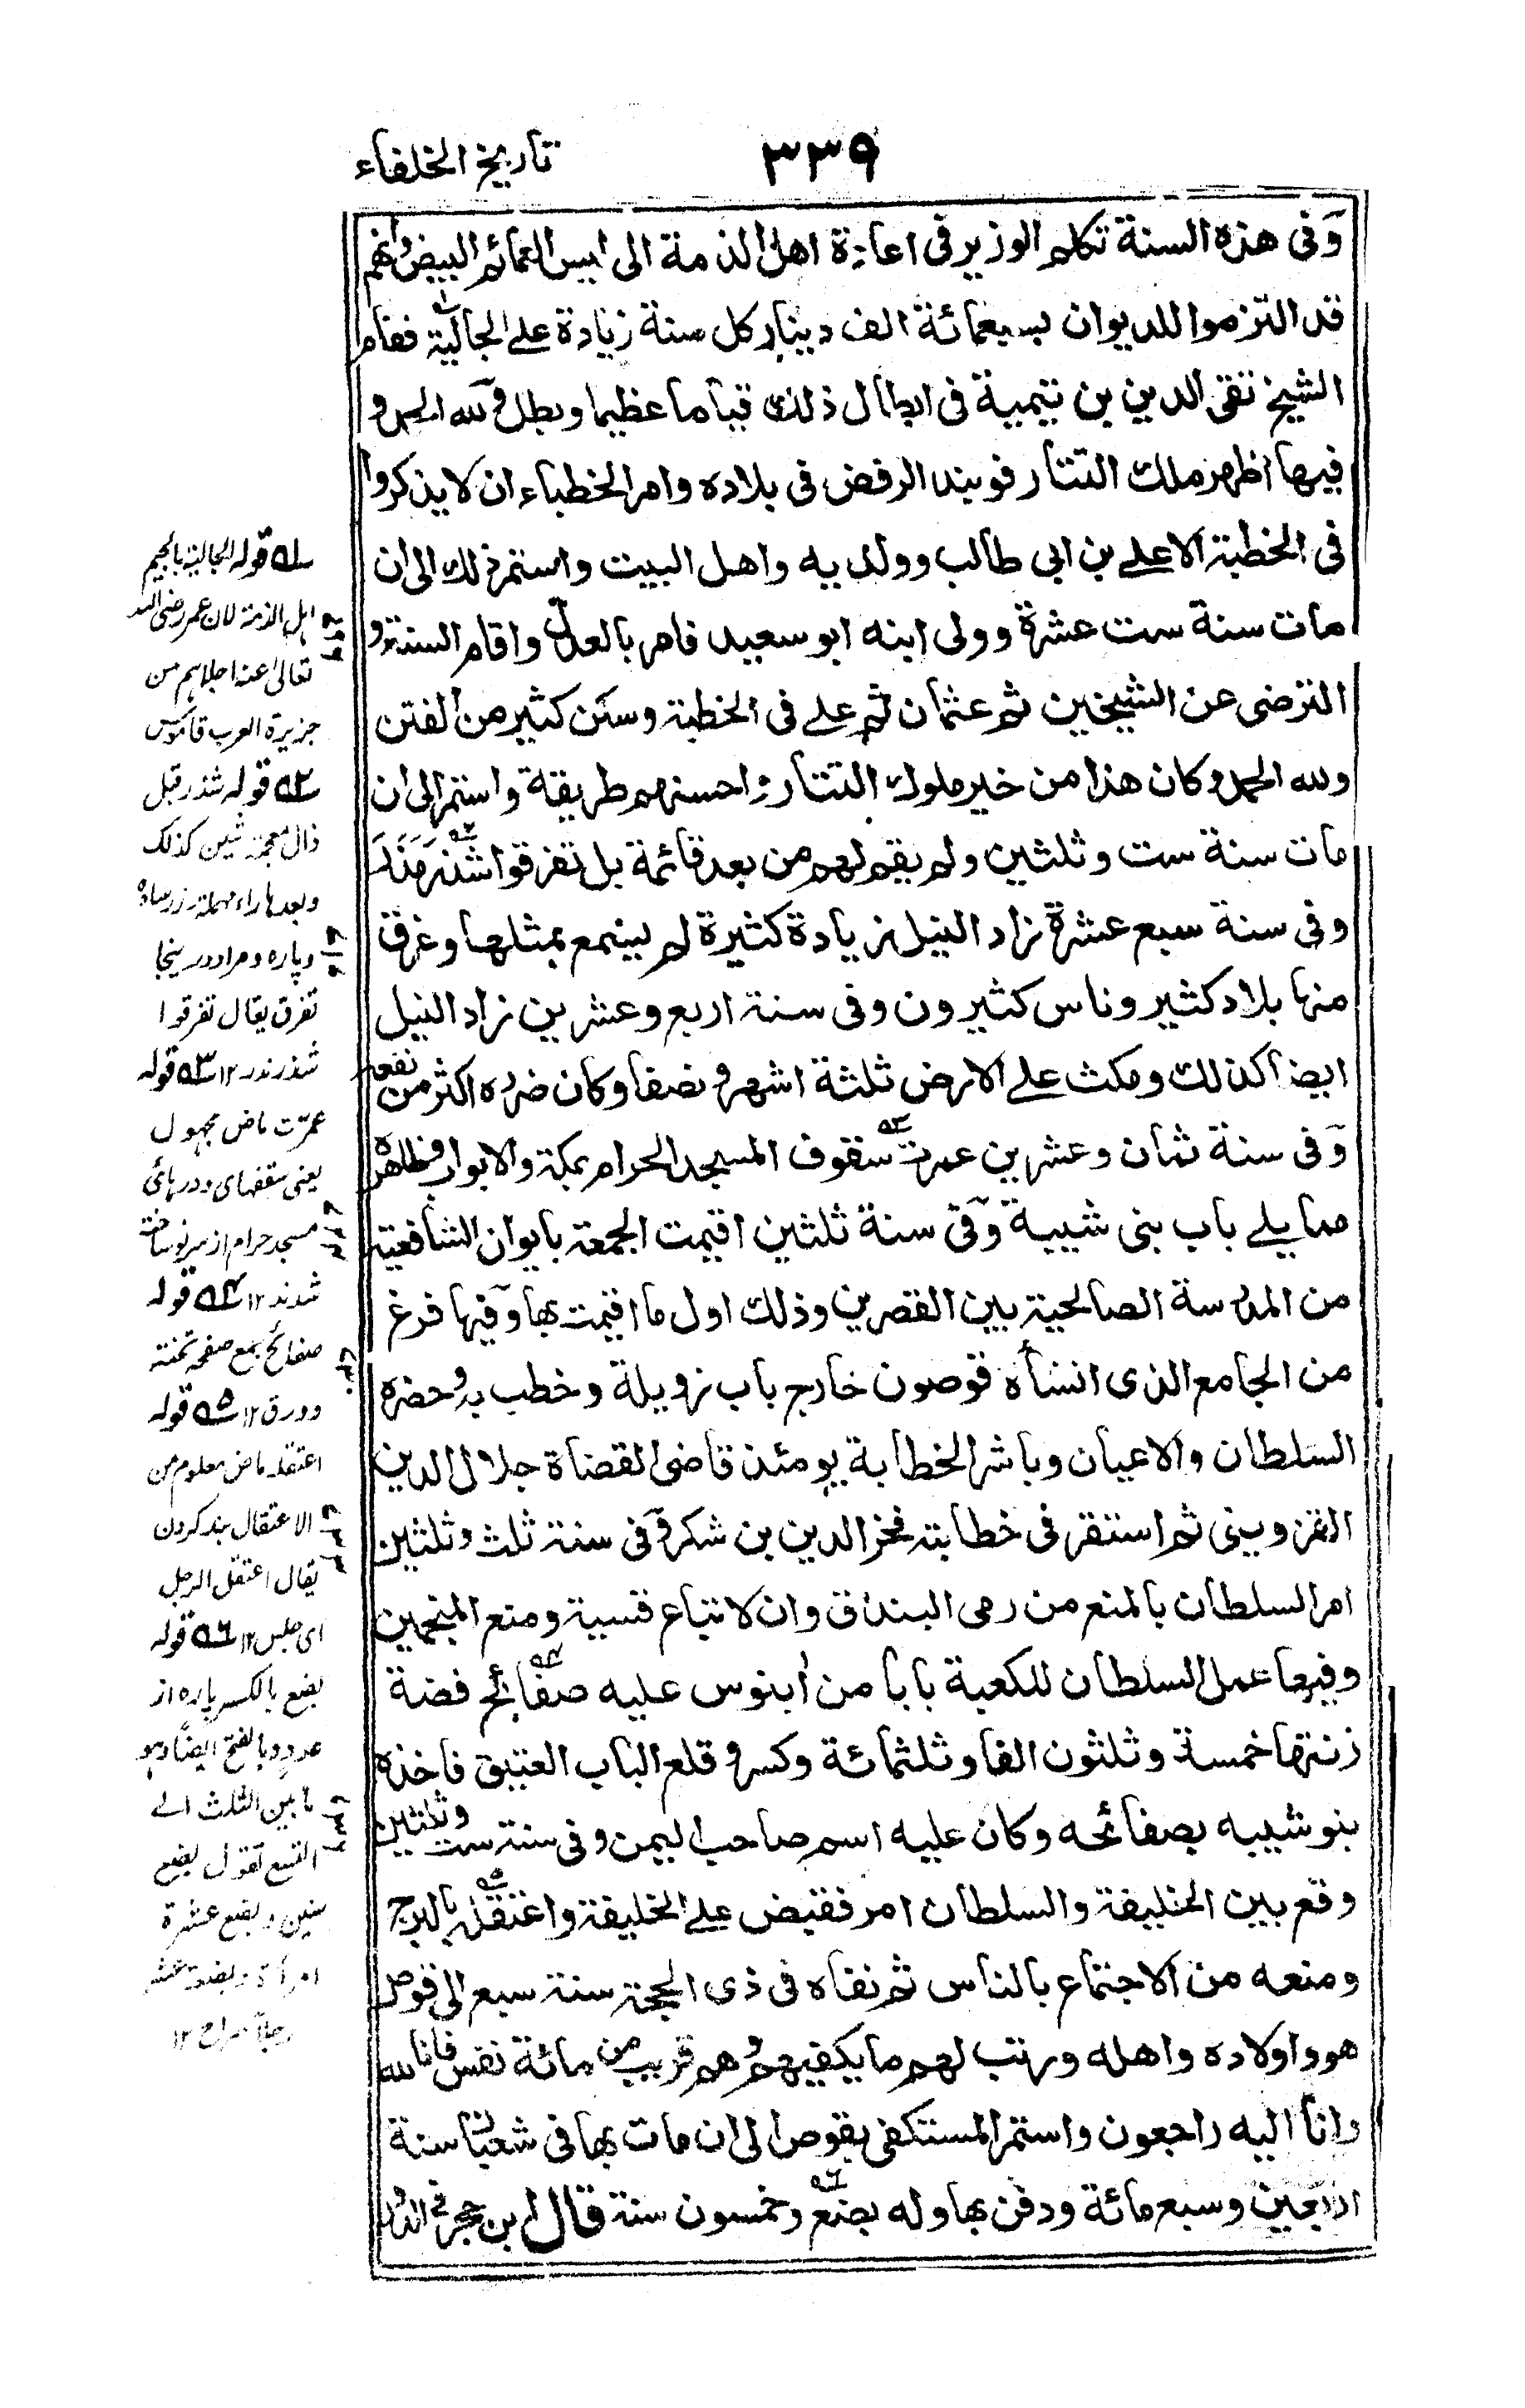 ٣٣٩
تاريخ الخلفاء
وفى هذه السنة تكلم الوزير فى اعادة اهل الذمة الى لبس العمائم البيض وانهم
قد التزموا للديوان بسبعمائة الف دينار كل سنة زيادة على الجالية فقام
الشيخ تقى الدين بن تيمية فى ابطال ذلك قياما عظيما وبطل ولله الحمد و
فيها اظهر ملك التتار فوبند الرفض فى بلاده وامر الخطباء ان لا يذكروا
فى الخطبة الا على بن ابى طالب وولديه واهل البيت واستمر ذلك الى ان
مات سنة ست عشرة وولى ابنه ابو سعيد فامر بالعدل واقام السنة و
الترضى عن الشيخين ثم عثمان ثم على فى الخطبة وسكن كثير من الفتن
ولله الحمد وكان هذا من خير ملوك التتار واحسنهم طريقة واستمر الى ان
مات سنة ست وثلثين ولم يقم لهم من بعد قائمة بل تفرقوا شذر مذر
وفى سنة سبع عشرة زاد النيل زيادة كثيرة لم يسمع بمثلها وغرق
منها بلاد كثير وناس كثيرون وفى سنة اربع وعشرين زاد النيل
ايضا كذلك ومكث على الارض ثلثة اشهر ونصفا وكان ضرره اكثر من نفعه
وفى سنة ثمان وعشرين عمرت سقوف المسجد الحرام بمكة والابواب وظاهره
مما يلى باب بنى شيبة وفى سنة ثلثين اقيمت الجمعة بايوان الشافعية
من المدرسة الصالحية بين القصرين وذلك اول ما اقيمت بها وفيها فرغ
من الجامع الذى انشأه قوصون خارج باب زويلة وخطب به وحضره
السلطان والاعيان وباشر الخطابة يومئذ قاضى القضاة جلال الدين
القزوينى ثم استقر فى خطابته فخر الدين بن شكر وفى سنة ثلث وثلثين
امر السلطان بالمنع من رمى البندق وان لا تباع قسية ومنع المنجمين
وفيها عمل السلطان للكعبة بابا من أبنوس عليه صفائح فضة
زنتها خمسة وثلثون الفا وثلثمائة وكسر وقلع الباب العتيق فاخذه
بنو شيبه بصفائحه وكان عليه اسم صاحب اليمن وفى سنة ست وثلثين
وقع بين الخليفة والسلطان امر فقبض على الخليفة واعتقله بالبرج
ومنعه من الاجتماع بالناس ثم نفاه فى ذى الحجة سنة سبع الى قوص
هو واولاده واهله ورتب لهم ما يكفيهم وهم قريب من مائة نفس فانا لله
وانا اليه راجعون واستمر المستكفى بقوص الى ان مات بها فى شعبان سنة
اربعين وسبع مائة ودفن بها وله بضع وخمسون سنة قال ابن حجر فى الدرر
٥١ قوله الجالية بالجيم
اہل الذمة لان عمر رضى الله
تعالى عنه اجلاہم من
جزيرة العرب قاموس
٥٢ قوله شذر قبل
ذال معجمة شين كذلك
وبعدها راء مهملة
وپاره ومراد درينجا
تفرق يقال تفرقوا
شذر نذر ١٢ ٥٣ قوله
عمرت ماض مجهول
يعنى سقفهاى و درہائى
مسجد حرام از سرنو ساخته
شدند ١٢ ٥٤ قوله
صفائح جمع صفحه تخته
وورق ١٢ ٥٥ قوله
اعتقله ماض معلوم من
الاعتقال بند كردن
يقال اعتقل الرجل
اى حبس ١٢ ٥٦ قوله
بضع بالكسر پاره از
عدد وبالفتح ايضا وہو
ما بين الثلث الى
التسع تقول بضع
سنين وبضع عشرة
امرأة وبضعة عشر
رجلا صراح ١٢